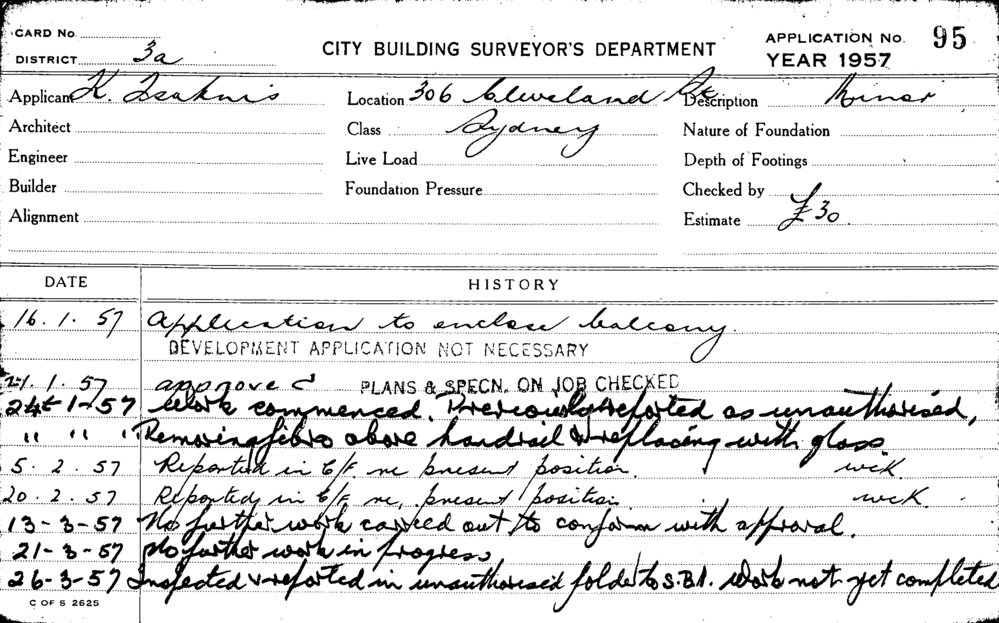 CARD No.
DISTRICT 3a
CITY BUILDING SURVEYOR'S DEPARTMENT
APPLICATION No. 95
YEAR 1957
Applicant K. Tsaknis Location 306 Cleveland St Description Minor
Architect Class Sydney Nature of Foundation
Engineer Live Load Depth of Footings
Builder Foundation Pressure Checked by
Alignment Estimate £30.
DATE HISTORY
16. 1. 57 Application to enclose balcony.
DEVELOPMENT APPLICATION NOT NECESSARY
21. 1. 57 approved PLANS & SPECN. ON JOB CHECKED
24-1-57 Work commenced. Previously reported as unauthorised,
" " " Removing fibro above handrail & replacing with glass.
5. 2. 57 Reported in re present position. WCK.
20. 2. 57 Reported in re, present position WCK.
13-3-57 No further work carried out to conform with approval.
21-3-57 No further work in progress,
26-3-57 Inspected & reported in unauthorised folder to S.B.I. Work not yet completed
C OF S 2625